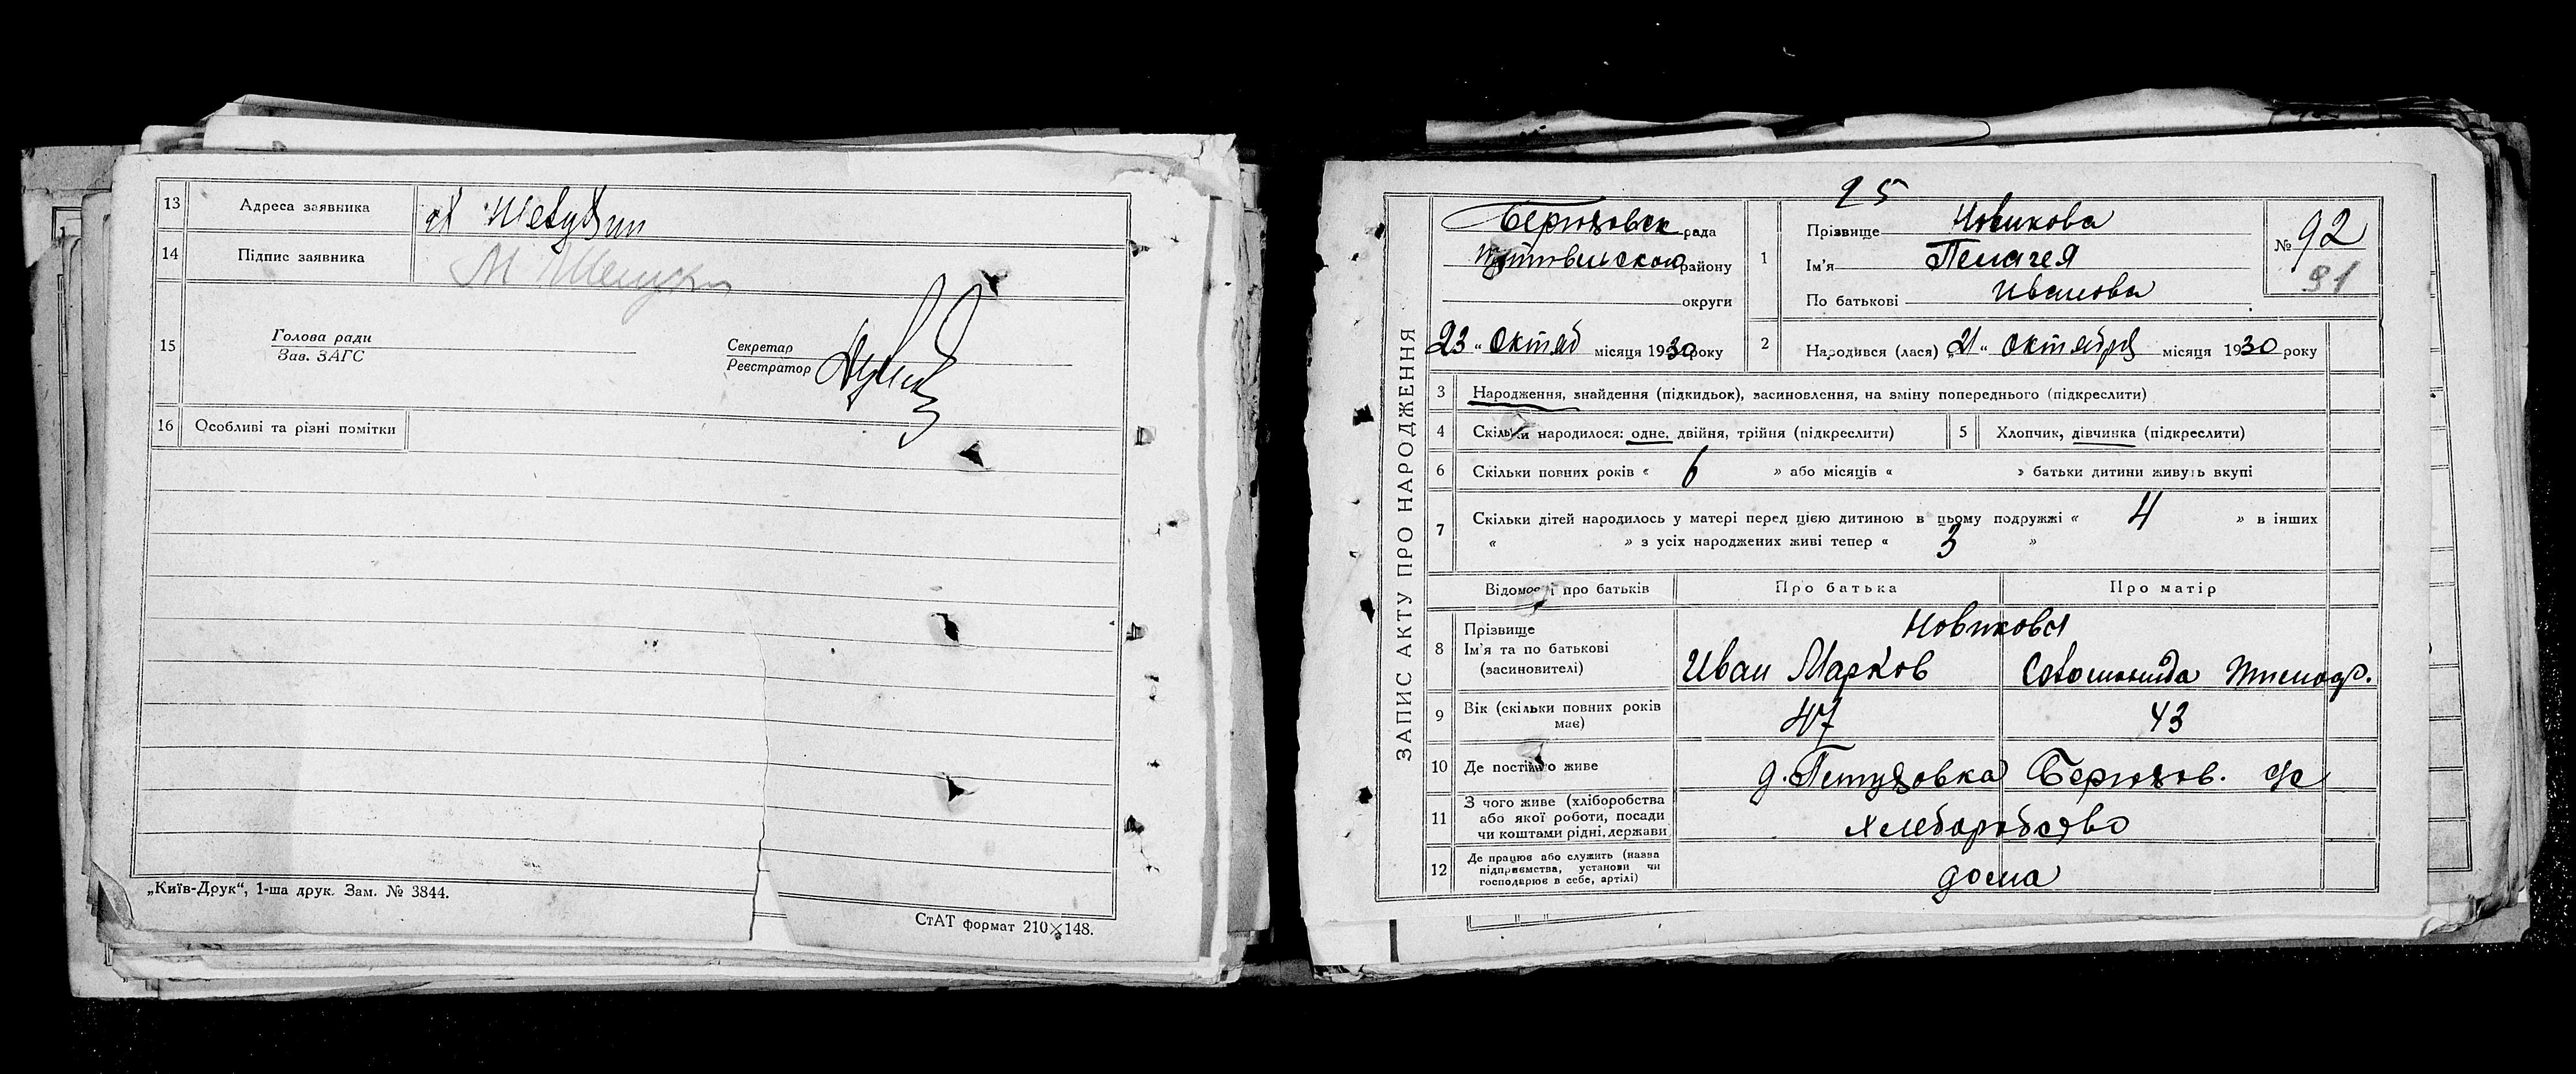 13 Адреса заявника
14 Підпис заявника
15 Голова ради
Зав. ЗАГС
Секретар
Реєстратор
16 Особливі та різні помітки
„Київ-Друк“, 1-ша друк. Зам. № 3844.
СтАТ формат 210×148.
ЗАПИС АКТУ ПРО НАРОДЖЕННЯ
25
рада
району
округи
23 „ Октяб місяця 1930 року
1 Прізвище Новикова
Ім'я Пелагея
По батькові Иванова
№ 92
91
2 Народився (лася) „21“ октября місяця 1930 року
3 Народження, знайдення (підкидьок), засиновлення, на зміну попереднього (підкреслити)
4 Скільки народилося: одне, двійня, трійня (підкреслити) 5 Хлопчик, дівчинка (підкреслити)
6 Скільки повних років « 6 » або місяців « » батьки дитини живуть вкупі
7 Скільки дітей народилось у матері перед цією дитиною в цьому подружжі « 4 » в інших
« » з усіх народжених живі тепер « 3 »
Відомості про батьків Про батька Про матір
8 Прізвище
Ім'я та по батькові
(засиновителі)
Новикова
Иван Марков
9 Вік (скільки повних років
має)
47 43
10 Де постійно живе
11 З чого живе (хліборобства
або якої роботи, посади
чи коштами рідні, держави
Хлеборобство
12 Де працює або служить (назва
підприємства, установи чи
господарює в себе, артілі)
дома